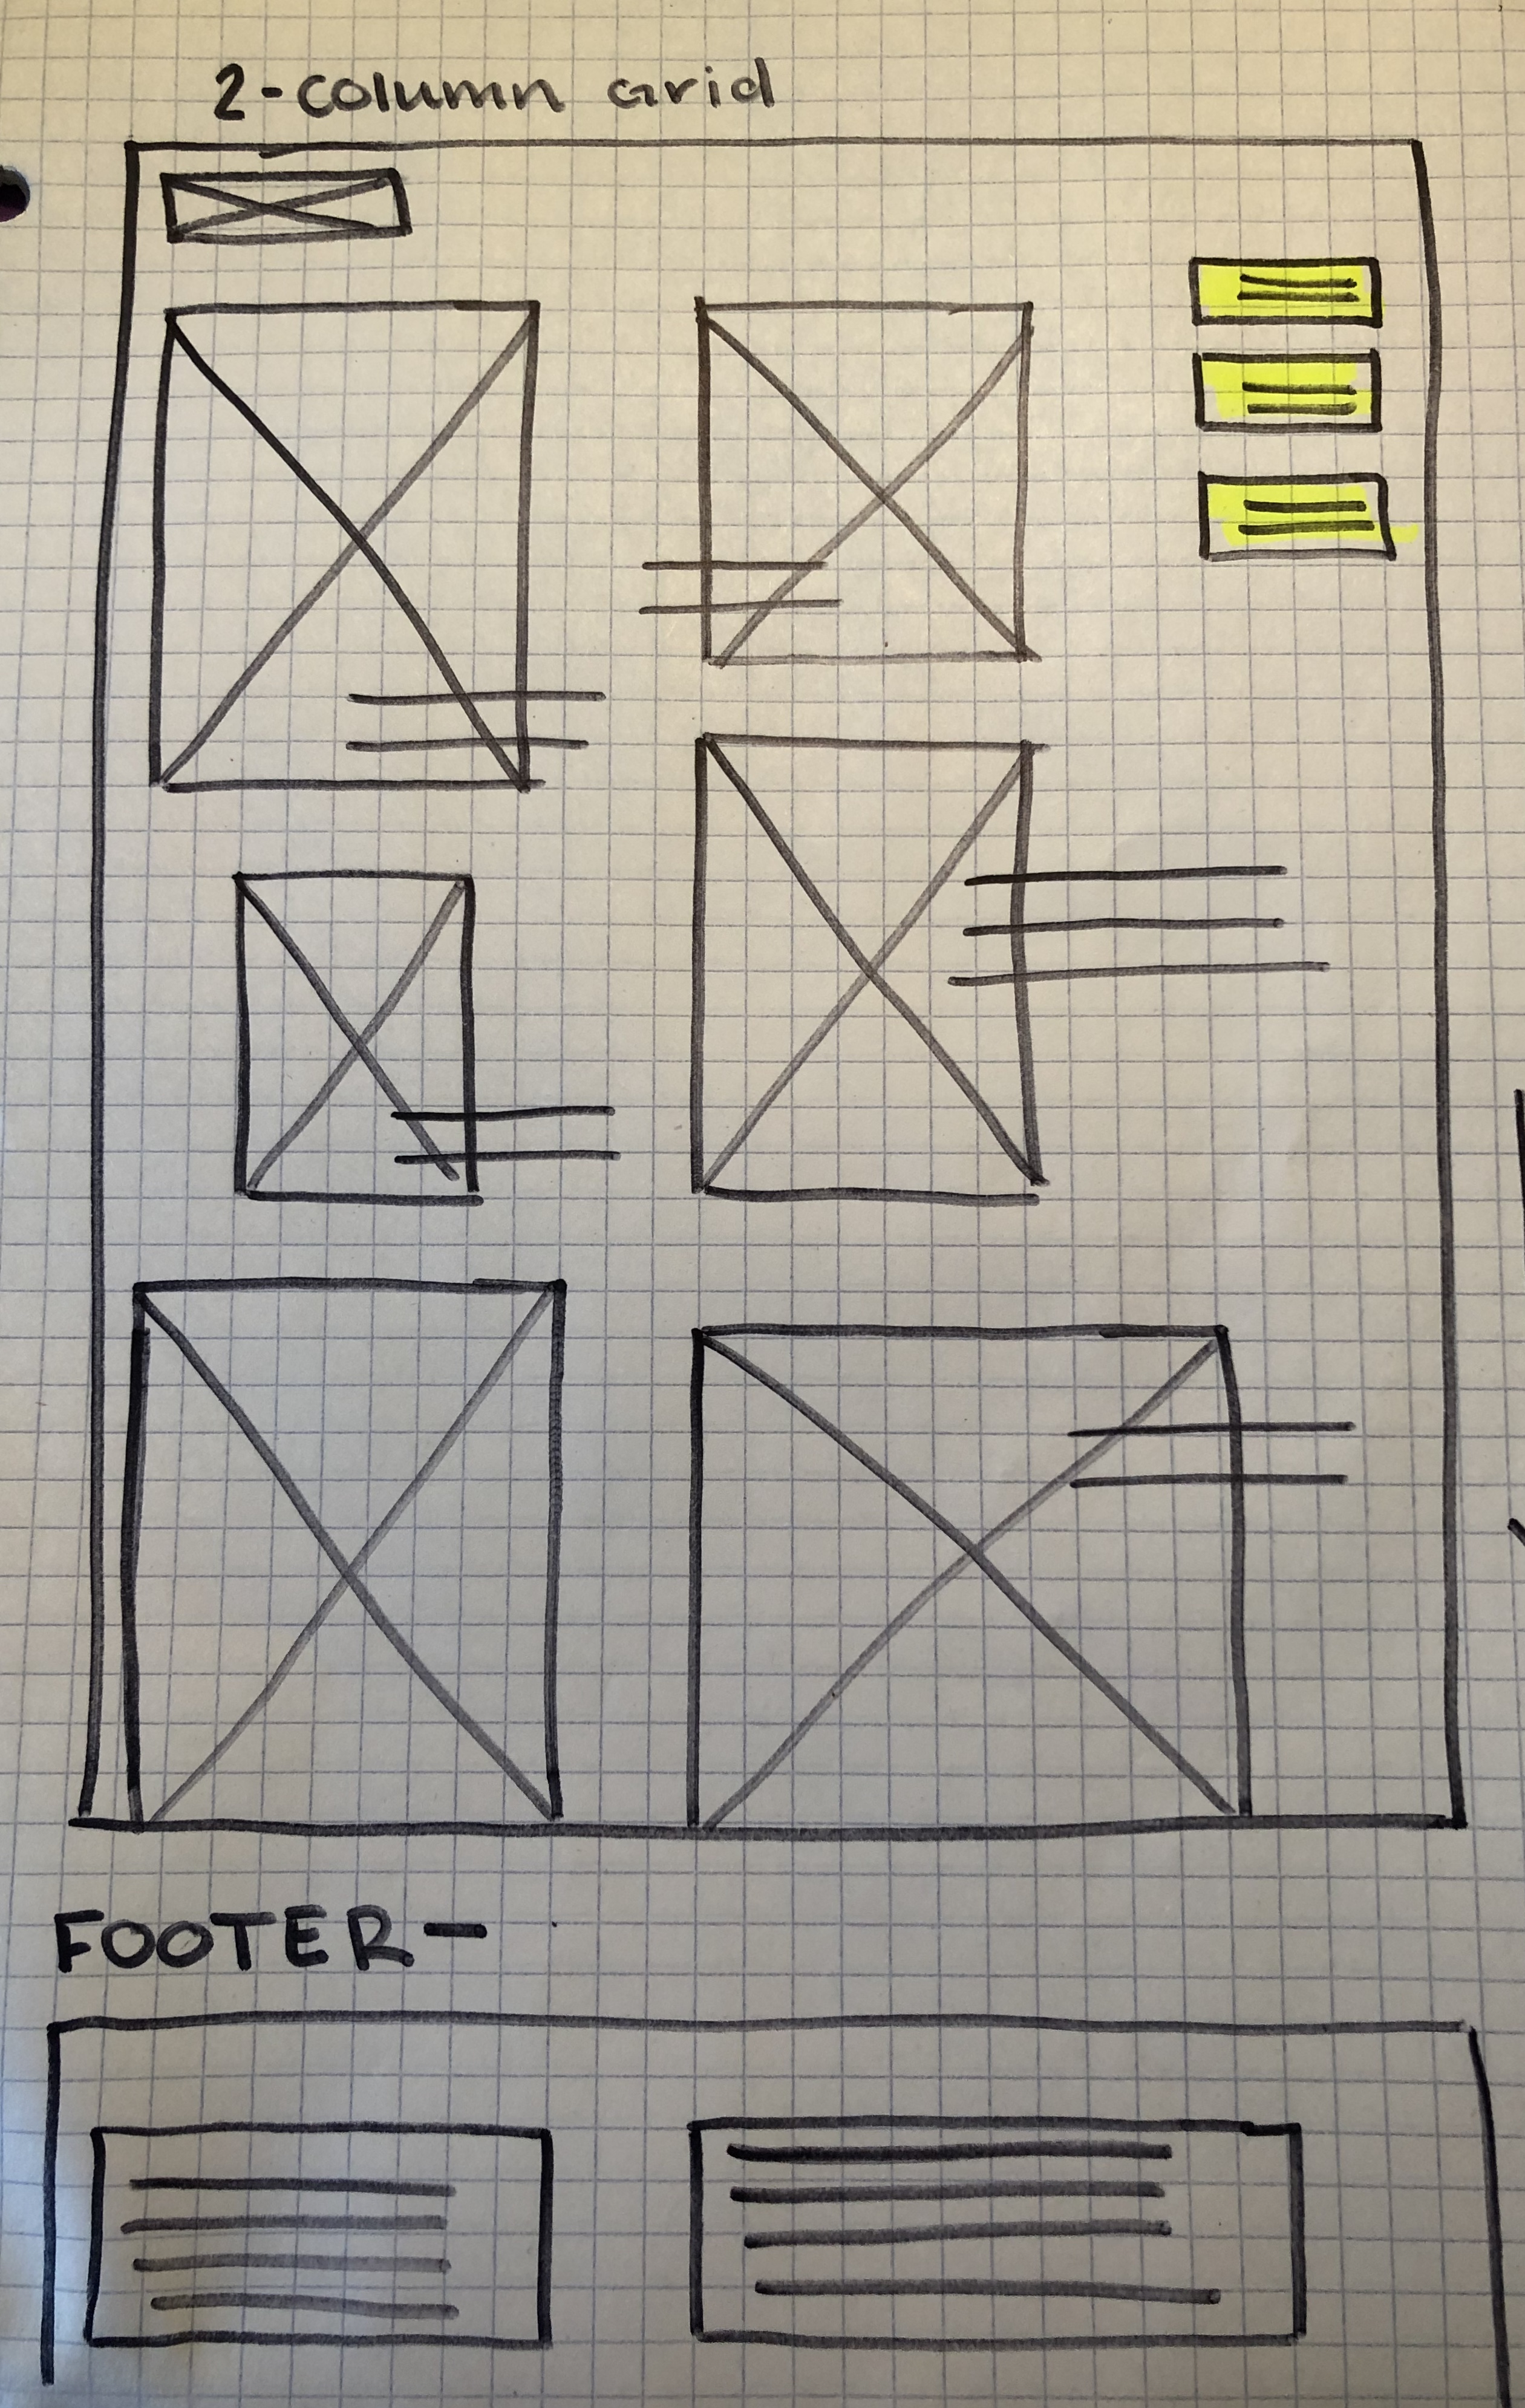 2-column Grid
FOOTER-